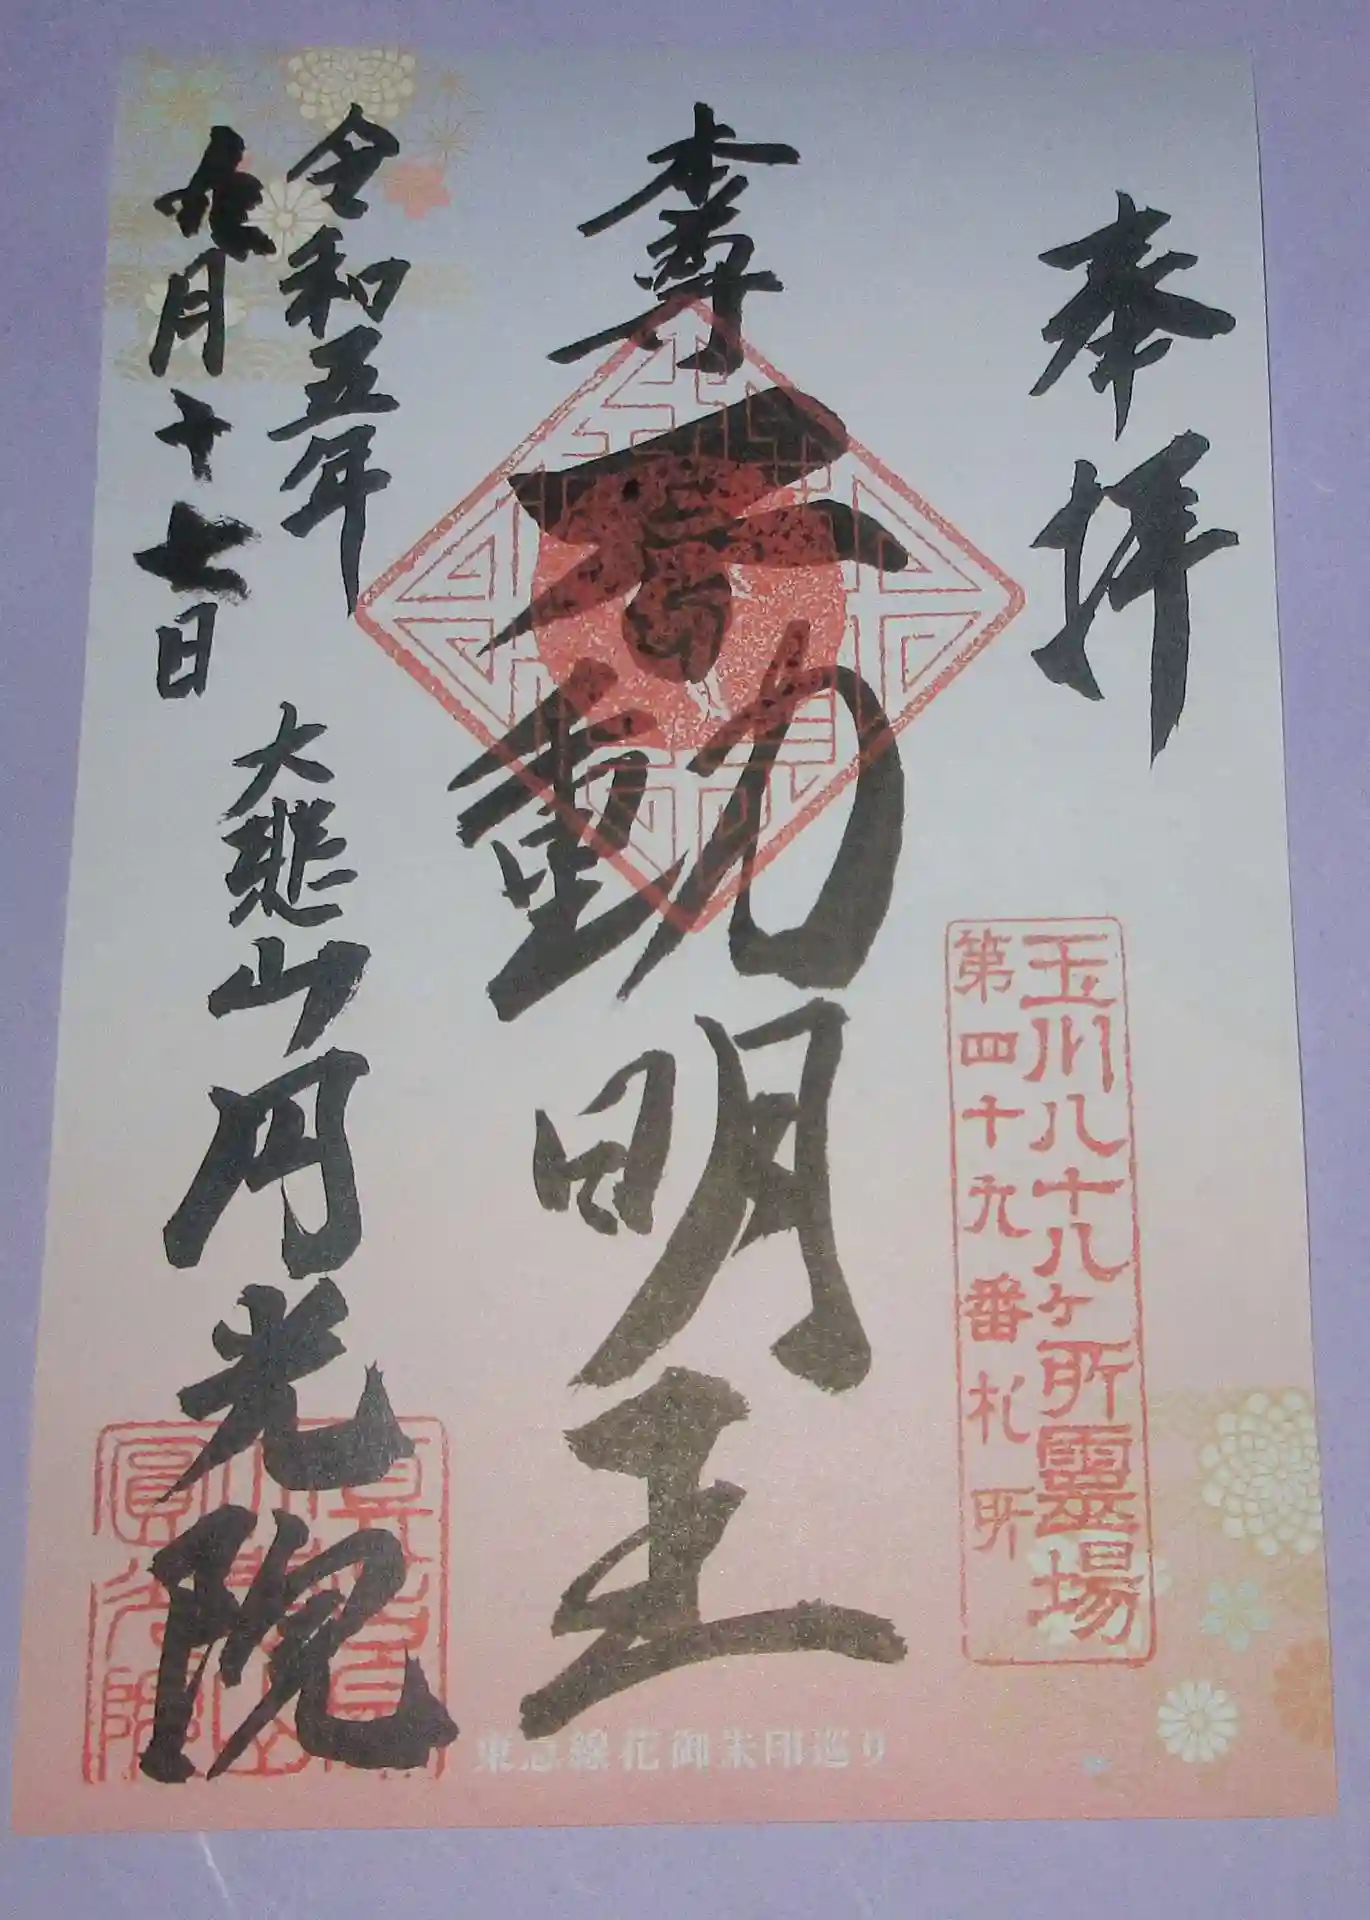 奉拝
玉川八十八ケ所霊場
第四十九番札所
本尊
不動明王
令和五年
九月十七日
大悲山円光院
東急線花御朱印巡り